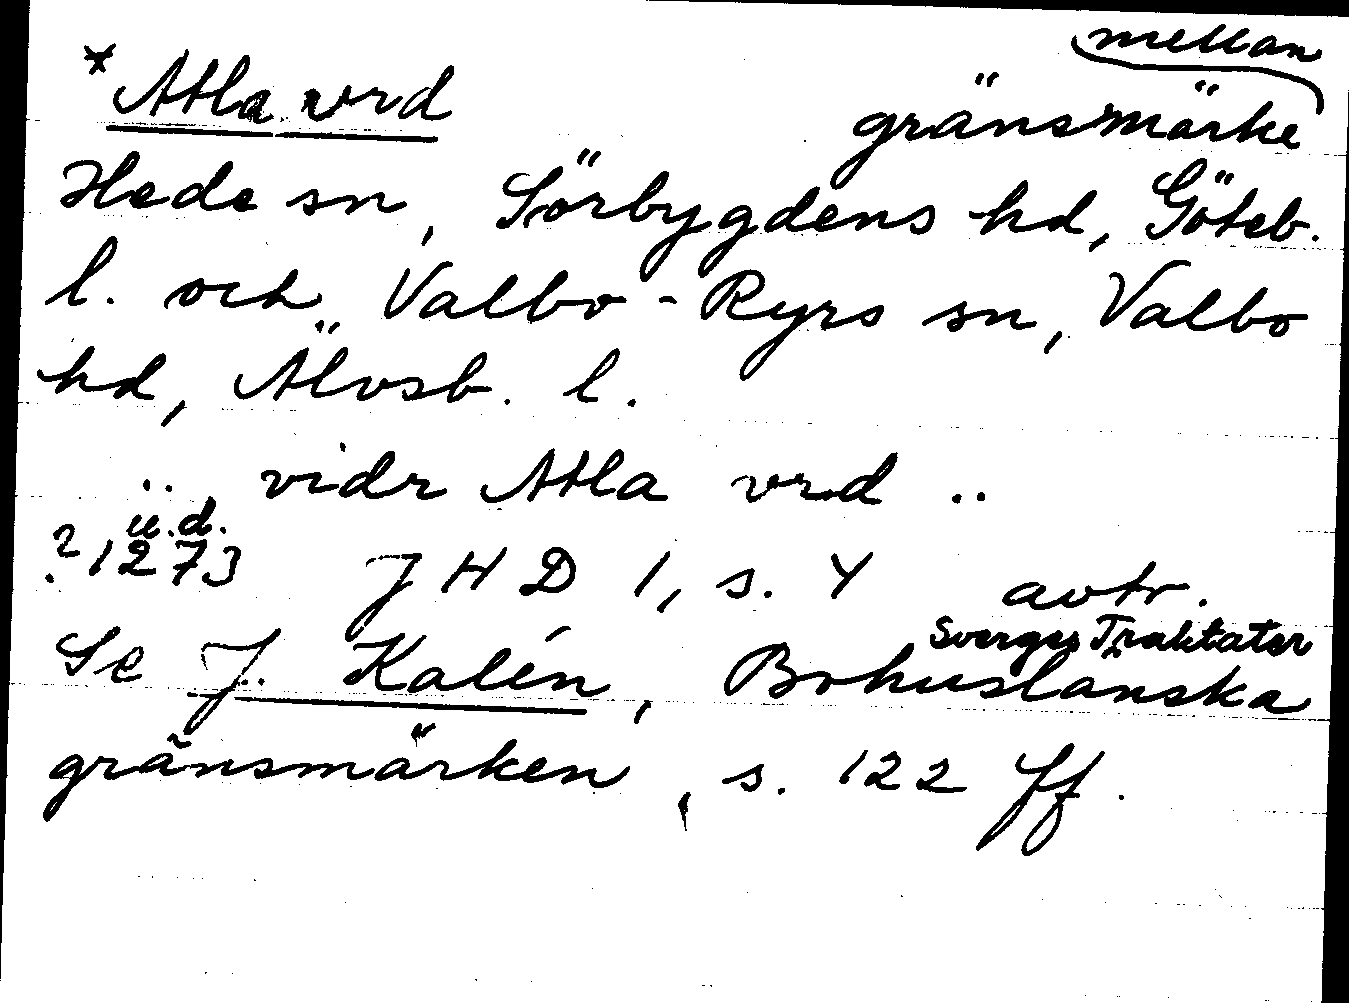 mellan
*Atla vrd gränsmärke
Hede sn, Sörbygdens hd, Göteb.
l. och Valbo-Ryrs sn, Valbo
hd, Älvsb. l.
.., vidr Atla vrd ..
u.d.
?1273 JHD 1, s. Y avtr.
Sverges Traktater
Se J. Kalén, Bohuslänska
gränsmärken, s. 122 ff.